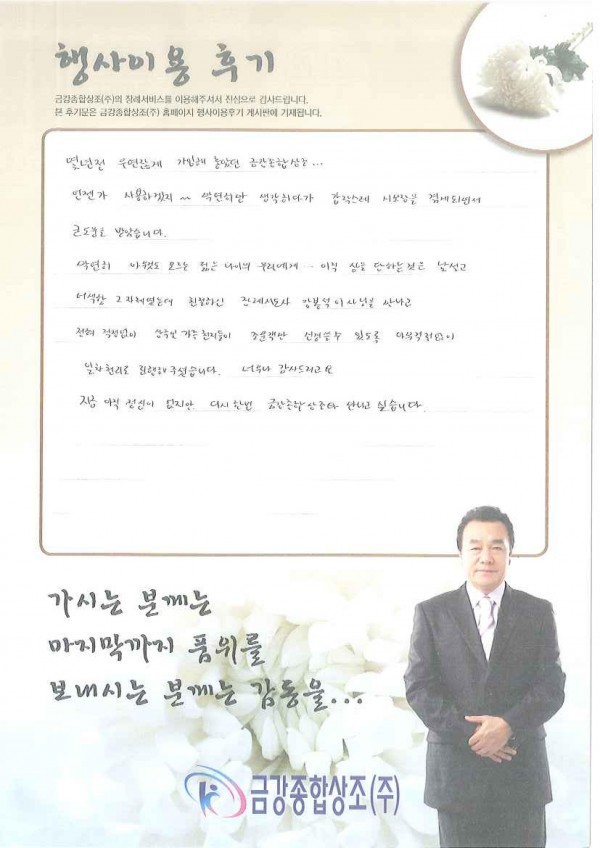 행사이용 후기
금강종합상조(주)의 장례서비스를 이용해주셔서 진심으로 감사드립니다.
본 후기문은 금강종합상조(주) 홈페이지 행사이용후기 게시판에 기재됩니다.
몇년전 우연찮게 가입해 놓았던 금강종합상조...
언젠가 사용하겠지~~ 막연히만 생각하다가 갑작스레 시모상을 겪게되면서
큰도움을 받았습니다.
막연히 아무것도 모르는 젊은 나이의 우리에게... 이런 일을 당하는것은 낯설고
어색한 2자리였는데 친절하신 장례지도사 이사님을 만나고
전혀 걱정없이 가족 친지들이 조문객만 수 있도록
일사천리로 진행해주셨습니다. 너무나 감사드리고요
지금 아직 정신이 없지만 다시한번 금강종합상조와 만나고 싶습니다.
가시는 분께는
마지막까지 품위를
보내시는 분께는 감동을...
금강종합상조(주)